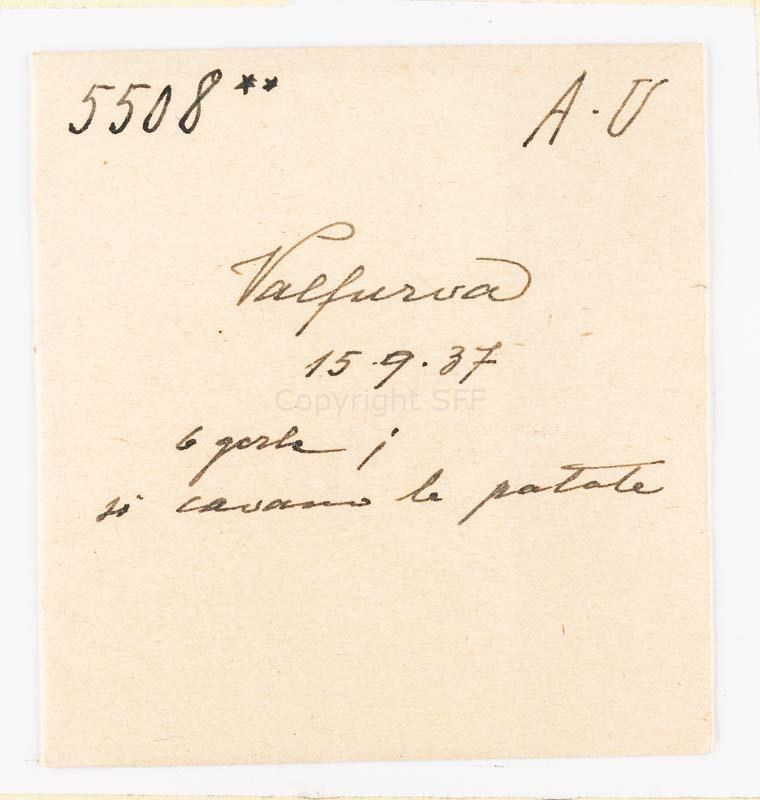 5508** A.V
Valfurva
15.9.37
Copyright SFF
le gerle;
si cavano le patate